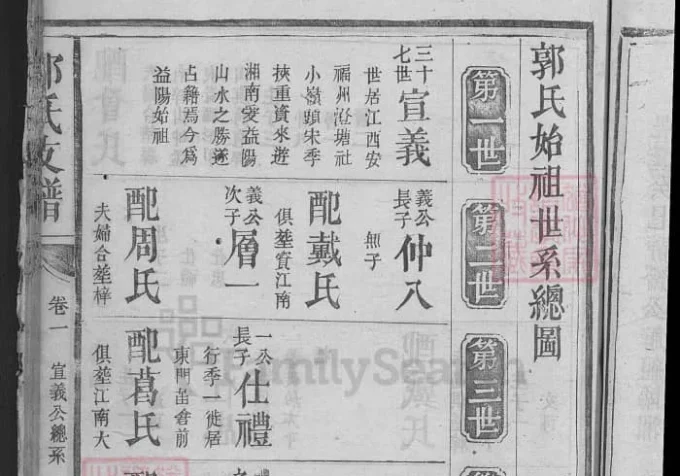 郭氏始祖世系總圖
第一世
三十七世
宣義
世居江西安
福州澄塘社
小嶺頭宋季
挾重資來遊
湘南愛益陽
山水之勝遂
占籍焉今為
益陽始祖
第二世
義公長子
仲入
無子
配戴氏
俱塟資江南
義公次子
層一
配周氏
夫婦合塟梓
第三世
一公長子
仕禮
行季一徙居
東門盅倉前
配葛氏
俱塟江南大
氏支譜
卷一
宣義公總系
FamilySearch